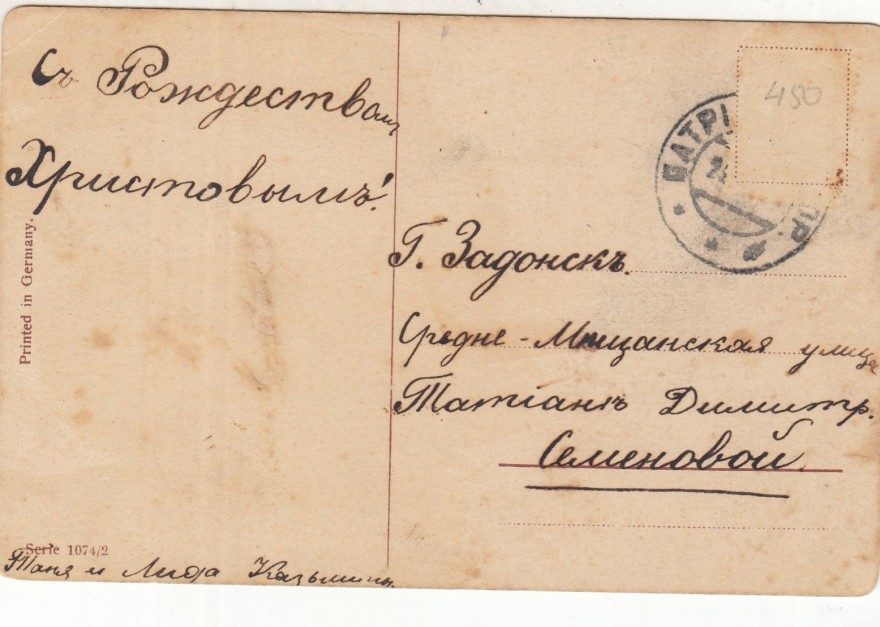 Съ Рождествомъ
Христовымъ!
Printed in Germany.
Serie 1074/2
Таня и Лида Казьмины
450
ПАТРІ
Г. Задонскъ.
Средне-Мѣщанская улица
Татіанѣ Димитр.
Семеновой.